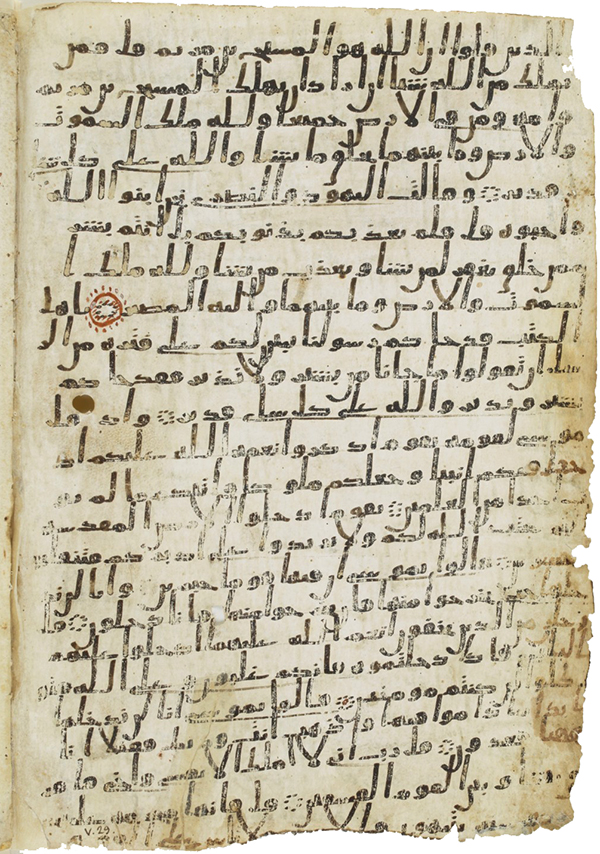 الذين قالوا ان الله هو المسيح بن مريم قل فمن
يملك من الله شيا ان اراد ان يهلك المسيح بن مريم
وامه ومن في الارض جميعا ولله ملك السموت
والارض وما بينهما يخلق ما يشا والله على كل شي
قدير وقالت اليهود والنصرى نحن ابنوا الله
واحبوه قل فلم يعذبكم بذنوبكم بل انتم بشر
ممن خلق يغفر لمن يشا ويعذب من يشا ولله ملك ا
لسموت والارض وما بينهما واليه المصير ياهل
الكتب قد جاكم رسولنا يبين لكم على فترة من الر
سل ان تقولوا ما جانا من بشير ولا نذير فقد جاكم
بشير ونذير والله على كل شي قدير واذ قال
موسى لقومه يقوم اذكروا نعمة الله عليكم اذ
جعل فيكم انبيا وجعلكم ملوكا واتيكم ما لم يو
ت احدا من العلمين يقوم ادخلوا الارض المقدسة
التي كتب الله لكم ولا ترتدوا على ادبركم فتنقلبوا
خسرين قالوا يموسى ان فيها قوما جبرين وانا لن ند
خلها حتى يخرجوا منها فان يخرجوا منها فانا دخلون قا
ل رجلن من الذين يخافون انعم الله عليهما ادخلوا عليهم
الباب فاذا دخلتموه فانكم غلبون وعلى الله فتو
كلوا ان كنتم مومنين قالوا يموسى انا لن ندخلها
ابدا ما داموا فيها فاذهب انت وربك فقتلا انا
ههنا قعدون قال رب اني لا املك الا نفسي واخي فافر
ق بيننا وبين القوم الفسقين قال فانها محرمة عليهم
سنة يتيهون في الارض
V. 29